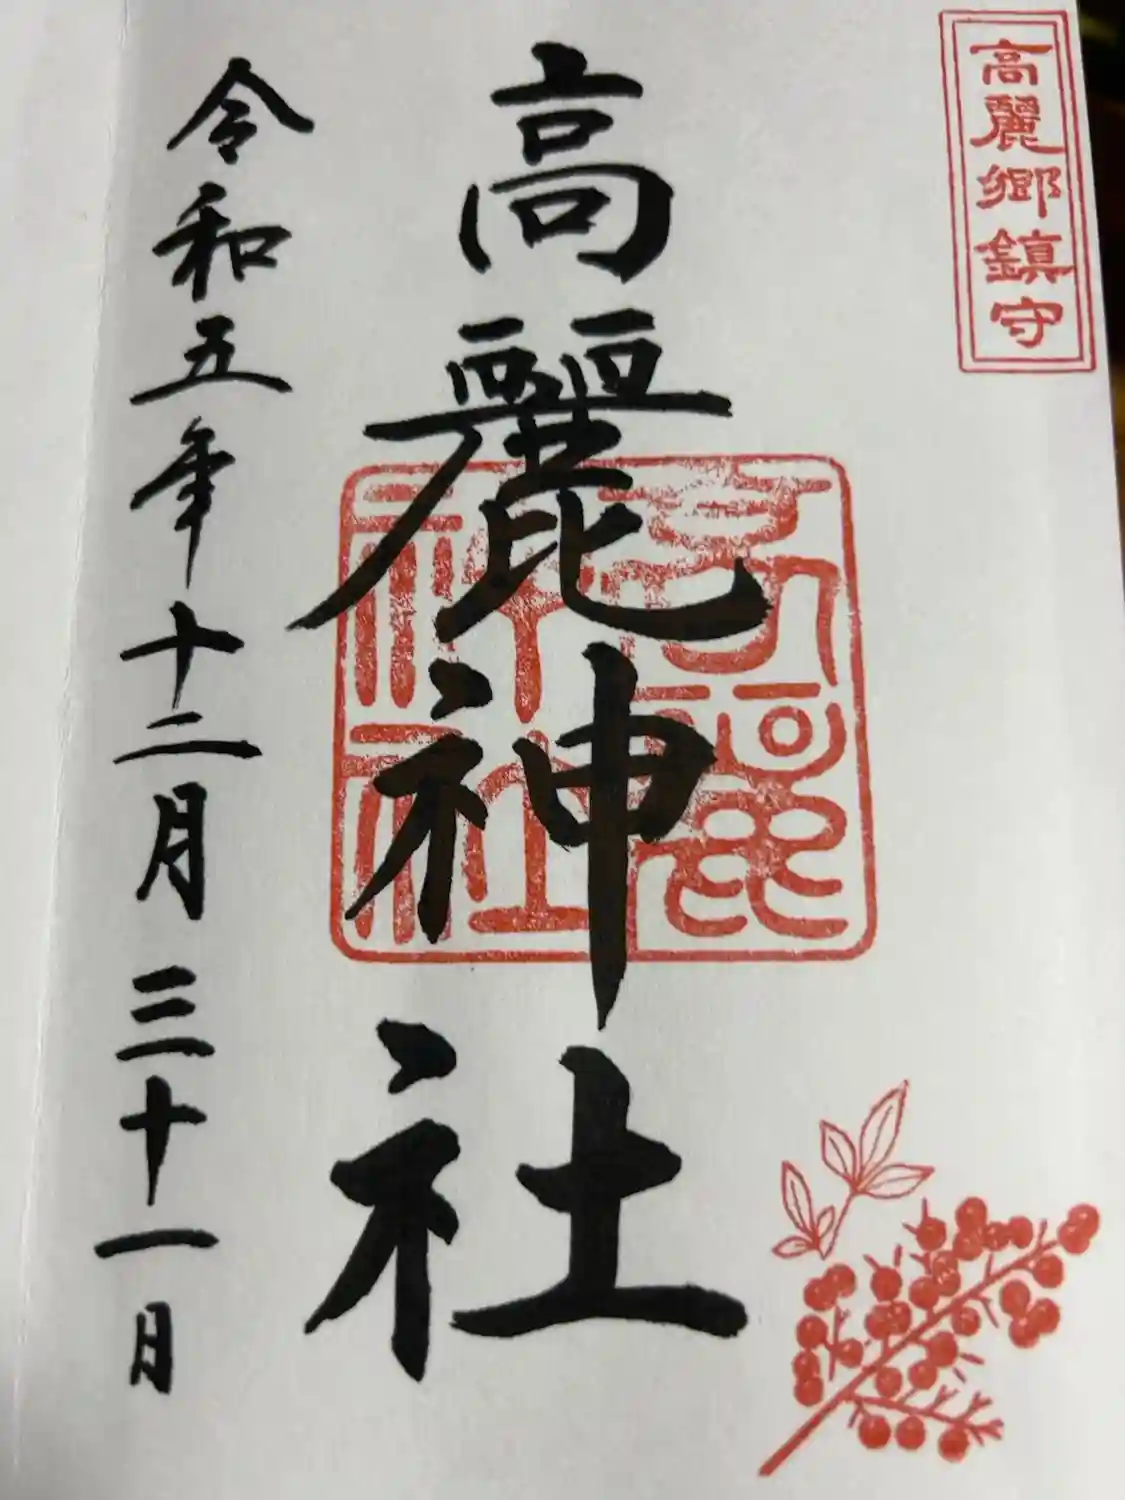 高麗郷鎮守
高麗神社
高麗
神社
令和五年十二月三十一日